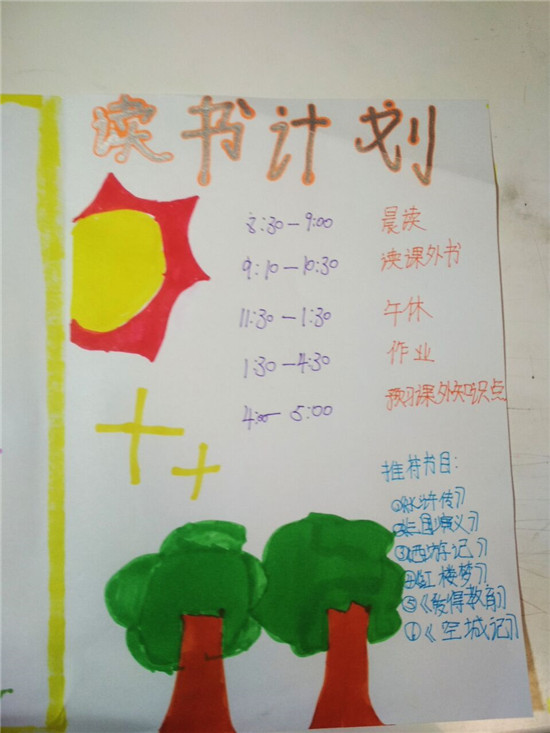 读书计划
8:30-9:00 晨读
9:10-10:30 读课外书
11:30-1:30 午休
1:30-4:30 作业
4:00-5:00 预习课外知识点
推荐书目:
①《水浒传》
②《三国演义》
③《西游记》
④《红楼梦》
⑤《教育》
①《空城记》